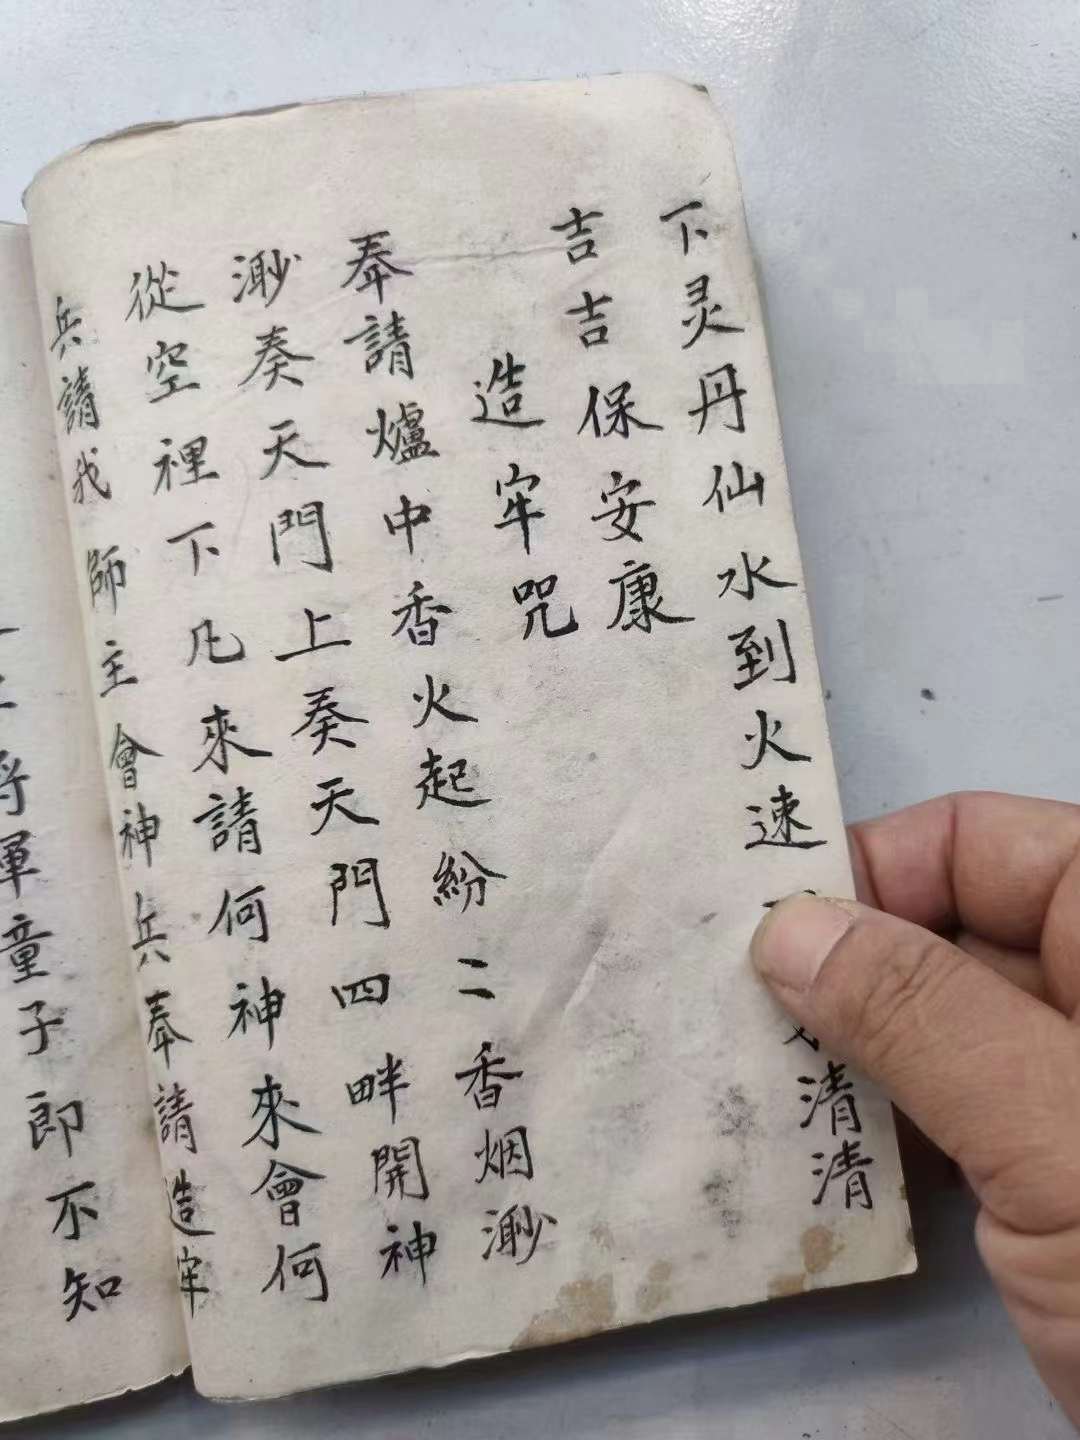 下灵丹仙水到火速清清
吉吉保安康
造牢咒
奉請爐中香火起紛二香烟渺
渺奏天門上奏天門四畔開神
從空裡下凡來請何神來會何
兵請我師主會神兵奉請造牢
將軍童子郎不知